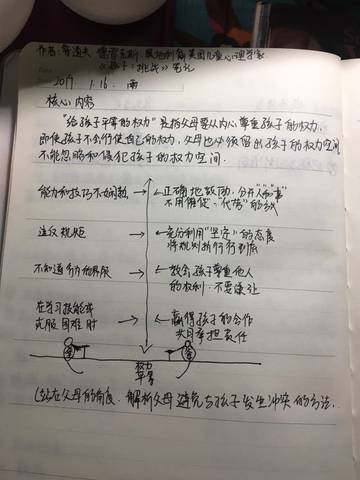 作者:鲁道夫·德雷克斯 奥地利裔美国儿童心理学家
《孩子:挑战》笔记
2019. 1.16. 雨
核心内容
"给孩子平等的权力"是指父母要从内心尊重孩子的权力,
即使孩子不会行使自己的权力,父母也必须留出孩子的权力空间
不能忽略和侵犯孩子的权力空间.
能力和技巧不娴熟
正确地鼓励,分开"人"和"事"
不用催促、"代劳"的方式
违反规矩
充分利用"坚定"的态度
将规则执行到底
不知道行为的界限
教会孩子尊重他人
的权利:不要谦让
在学习技能或
克服困难时
赢得孩子的合作
共同承担责任
权力
平等
(站在父母的角度,解析父母避免与孩子发生冲突的方法.